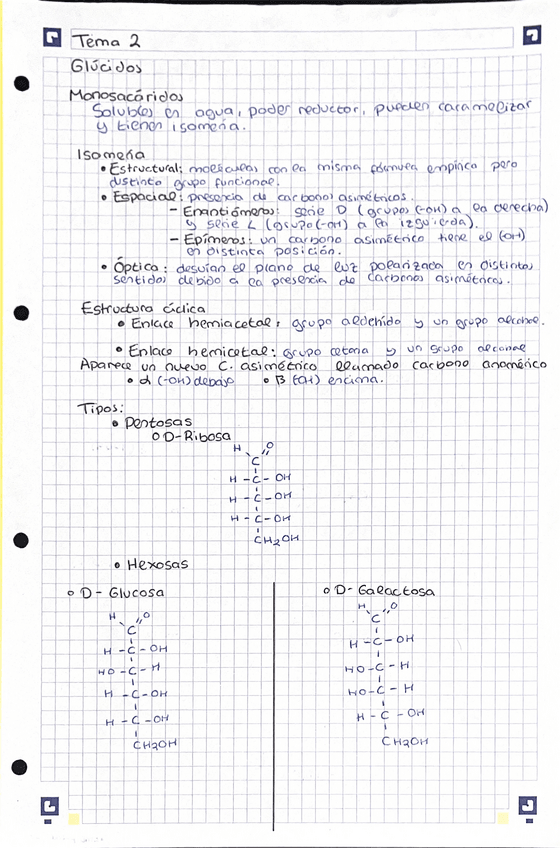 Tema 2
Glúcidos
Monosacáridos
Solubles en agua, poder reductor, pueden caramelizar
y tienen isomería.
Isomería
• Estructural: moléculas con la misma fórmula empírica pero
distinto grupo funcional.
• Espacial: presencia de carbonos asimétricos.
- Enantiómeros: serie D (grupos (-OH) a la derecha)
y serie L (grupo (-OH) a la izquierda).
- Epímeros: un carbono asimétrico tiene el (OH)
en distinta posición.
• Óptica: desvían el plano de luz polarizada en distintos
sentidos debido a la presencia de carbonos asimétricos.
Estructura cíclica
• Enlace hemiacetal: grupo aldehído y un grupo alcohol.
• Enlace hemicetal: grupo cetona y un grupo alcohol
Aparece un nuevo C. asimétrico llamado carbono anomérico
• α (-OH) debajo • β (OH) encima.
Tipos:
• Pentosas
○ D-Ribosa
H O
C
H - C - OH
H - C - OH
H - C - OH
CH2OH
• Hexosas
○ D-Glucosa
H O
C
H - C - OH
HO - C - H
H - C - OH
H - C - OH
CH2OH
○ D-Galactosa
H O
C
H - C - OH
HO - C - H
HO - C - H
H - C - OH
CH2OH